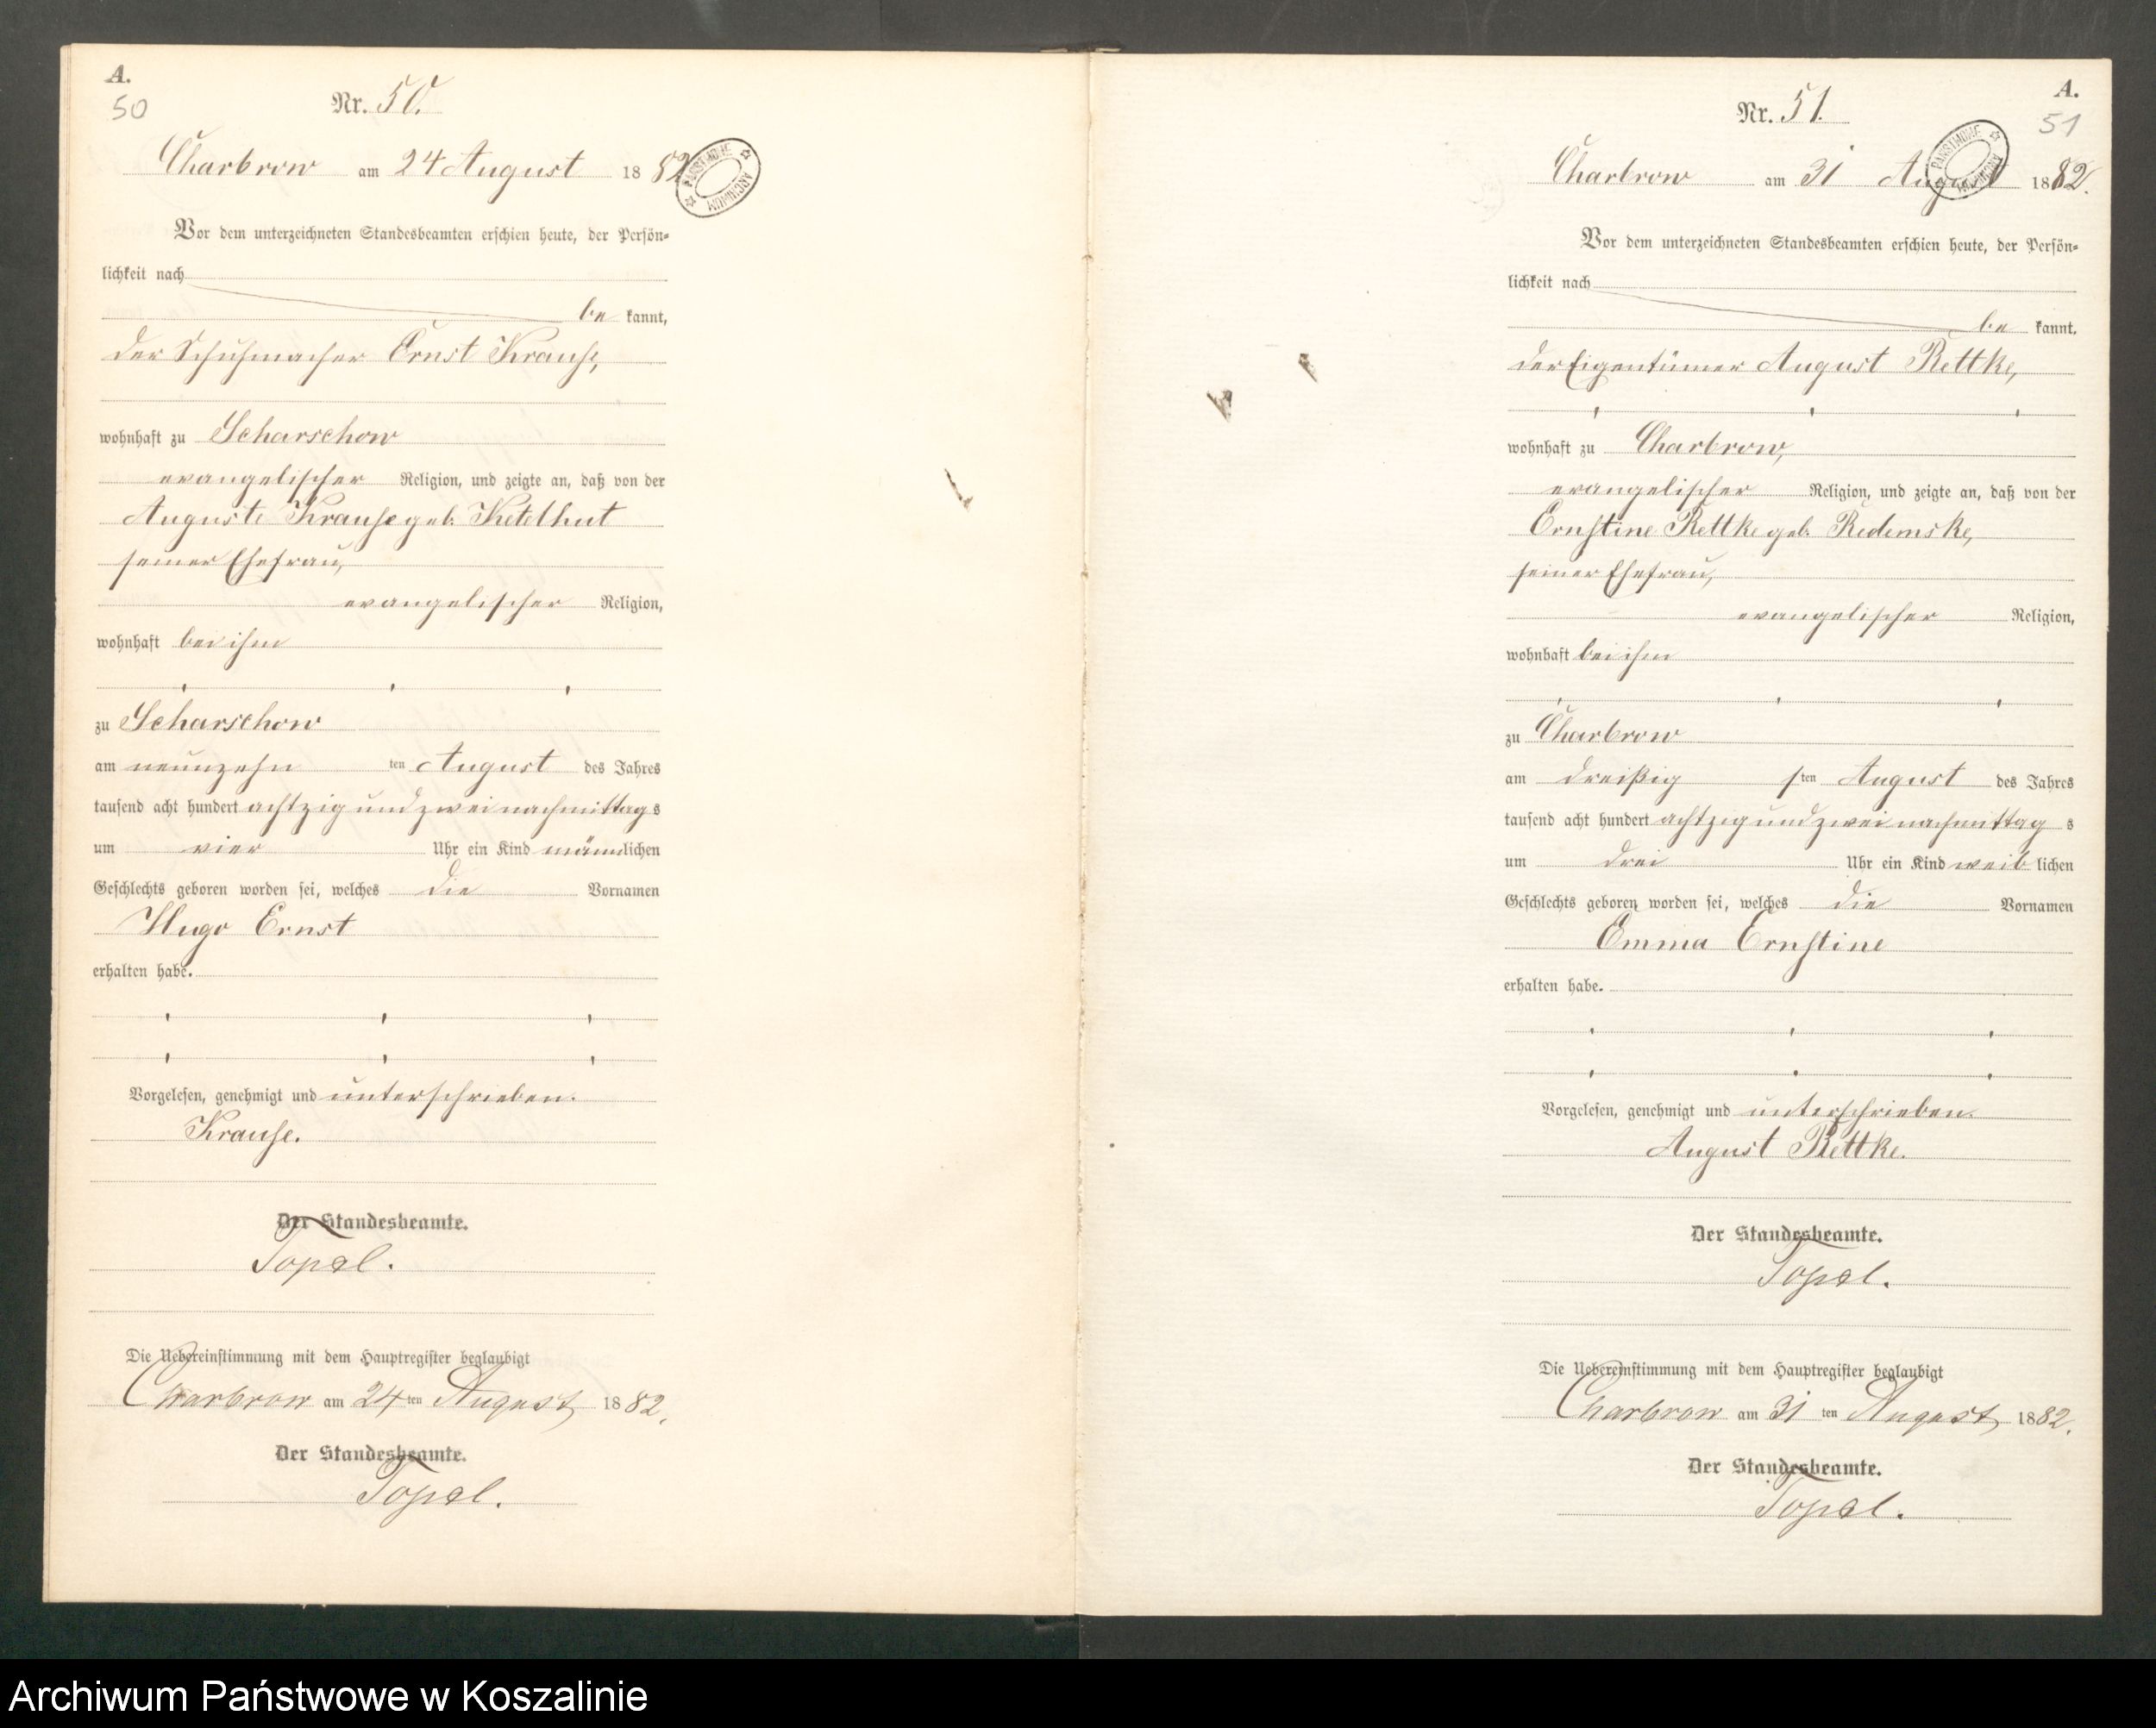 A.
50
Nr. 50.
Charbrow am 24 August 1882
PAŃSTWOWE
ARCHIWUM
Vor dem unterzeichneten Standesbeamten erschien heute, der Persön-
lichkeit nach
be kannt,
der Schuhmacher Ernst Krause,
wohnhaft zu Scharschow
evangelischer Religion, und zeigte an, daß von der
Auguste Krause geb. Ketelhut
seiner Ehefrau,
evangelischer Religion,
wohnhaft bei ihm
zu Scharschow
am neunzehn ten August des Jahres
tausend acht hundert achtzig und zwei nachmittags
um vier Uhr ein Kind männlichen
Geschlechts geboren worden sei, welches die Vornamen
Hugo Ernst
erhalten habe.
Vorgelesen, genehmigt und unterschrieben.
Krause.
Der Standesbeamte.
Topel.
Die Uebereinstimmung mit dem Hauptregister beglaubigt
Charbrow am 24 ten August 1882.
Der Standesbeamte.
Topel.
A.
51
Nr. 51.
Charbrow am 31 August 1882.
PAŃSTWOWE
ARCHIWUM
Vor dem unterzeichneten Standesbeamten erschien heute, der Persön-
lichkeit nach
be kannt,
der Eigentümer August Rettke,
wohnhaft zu Charbrow,
evangelischer Religion, und zeigte an, daß von der
Ernstine Rettke geb. Redemske,
seiner Ehefrau,
evangelischer Religion,
wohnhaft bei ihm
zu Charbrow
am dreißig sten August des Jahres
tausend acht hundert achtzig und zwei nachmittag s
um drei Uhr ein Kind weib lichen
Geschlechts geboren worden sei, welches die Vornamen
Emma Ernstine
erhalten habe.
Vorgelesen, genehmigt und unterschrieben.
August Rettke.
Der Standesbeamte.
Topel.
Die Uebereinstimmung mit dem Hauptregister beglaubigt
Charbrow am 31 ten August 1882.
Der Standesbeamte.
Topel.
Archiwum Państwowe w Koszalinie